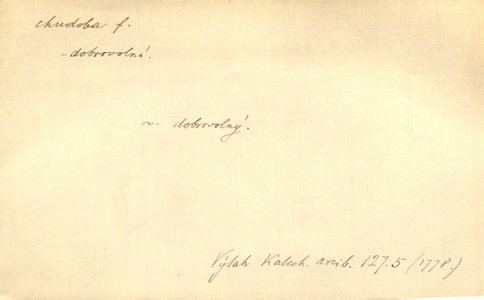 chudoba f.
- dobrovolná.
v. dobrovolný.
Výtah Katech. arcib. 127.5 (1778.)